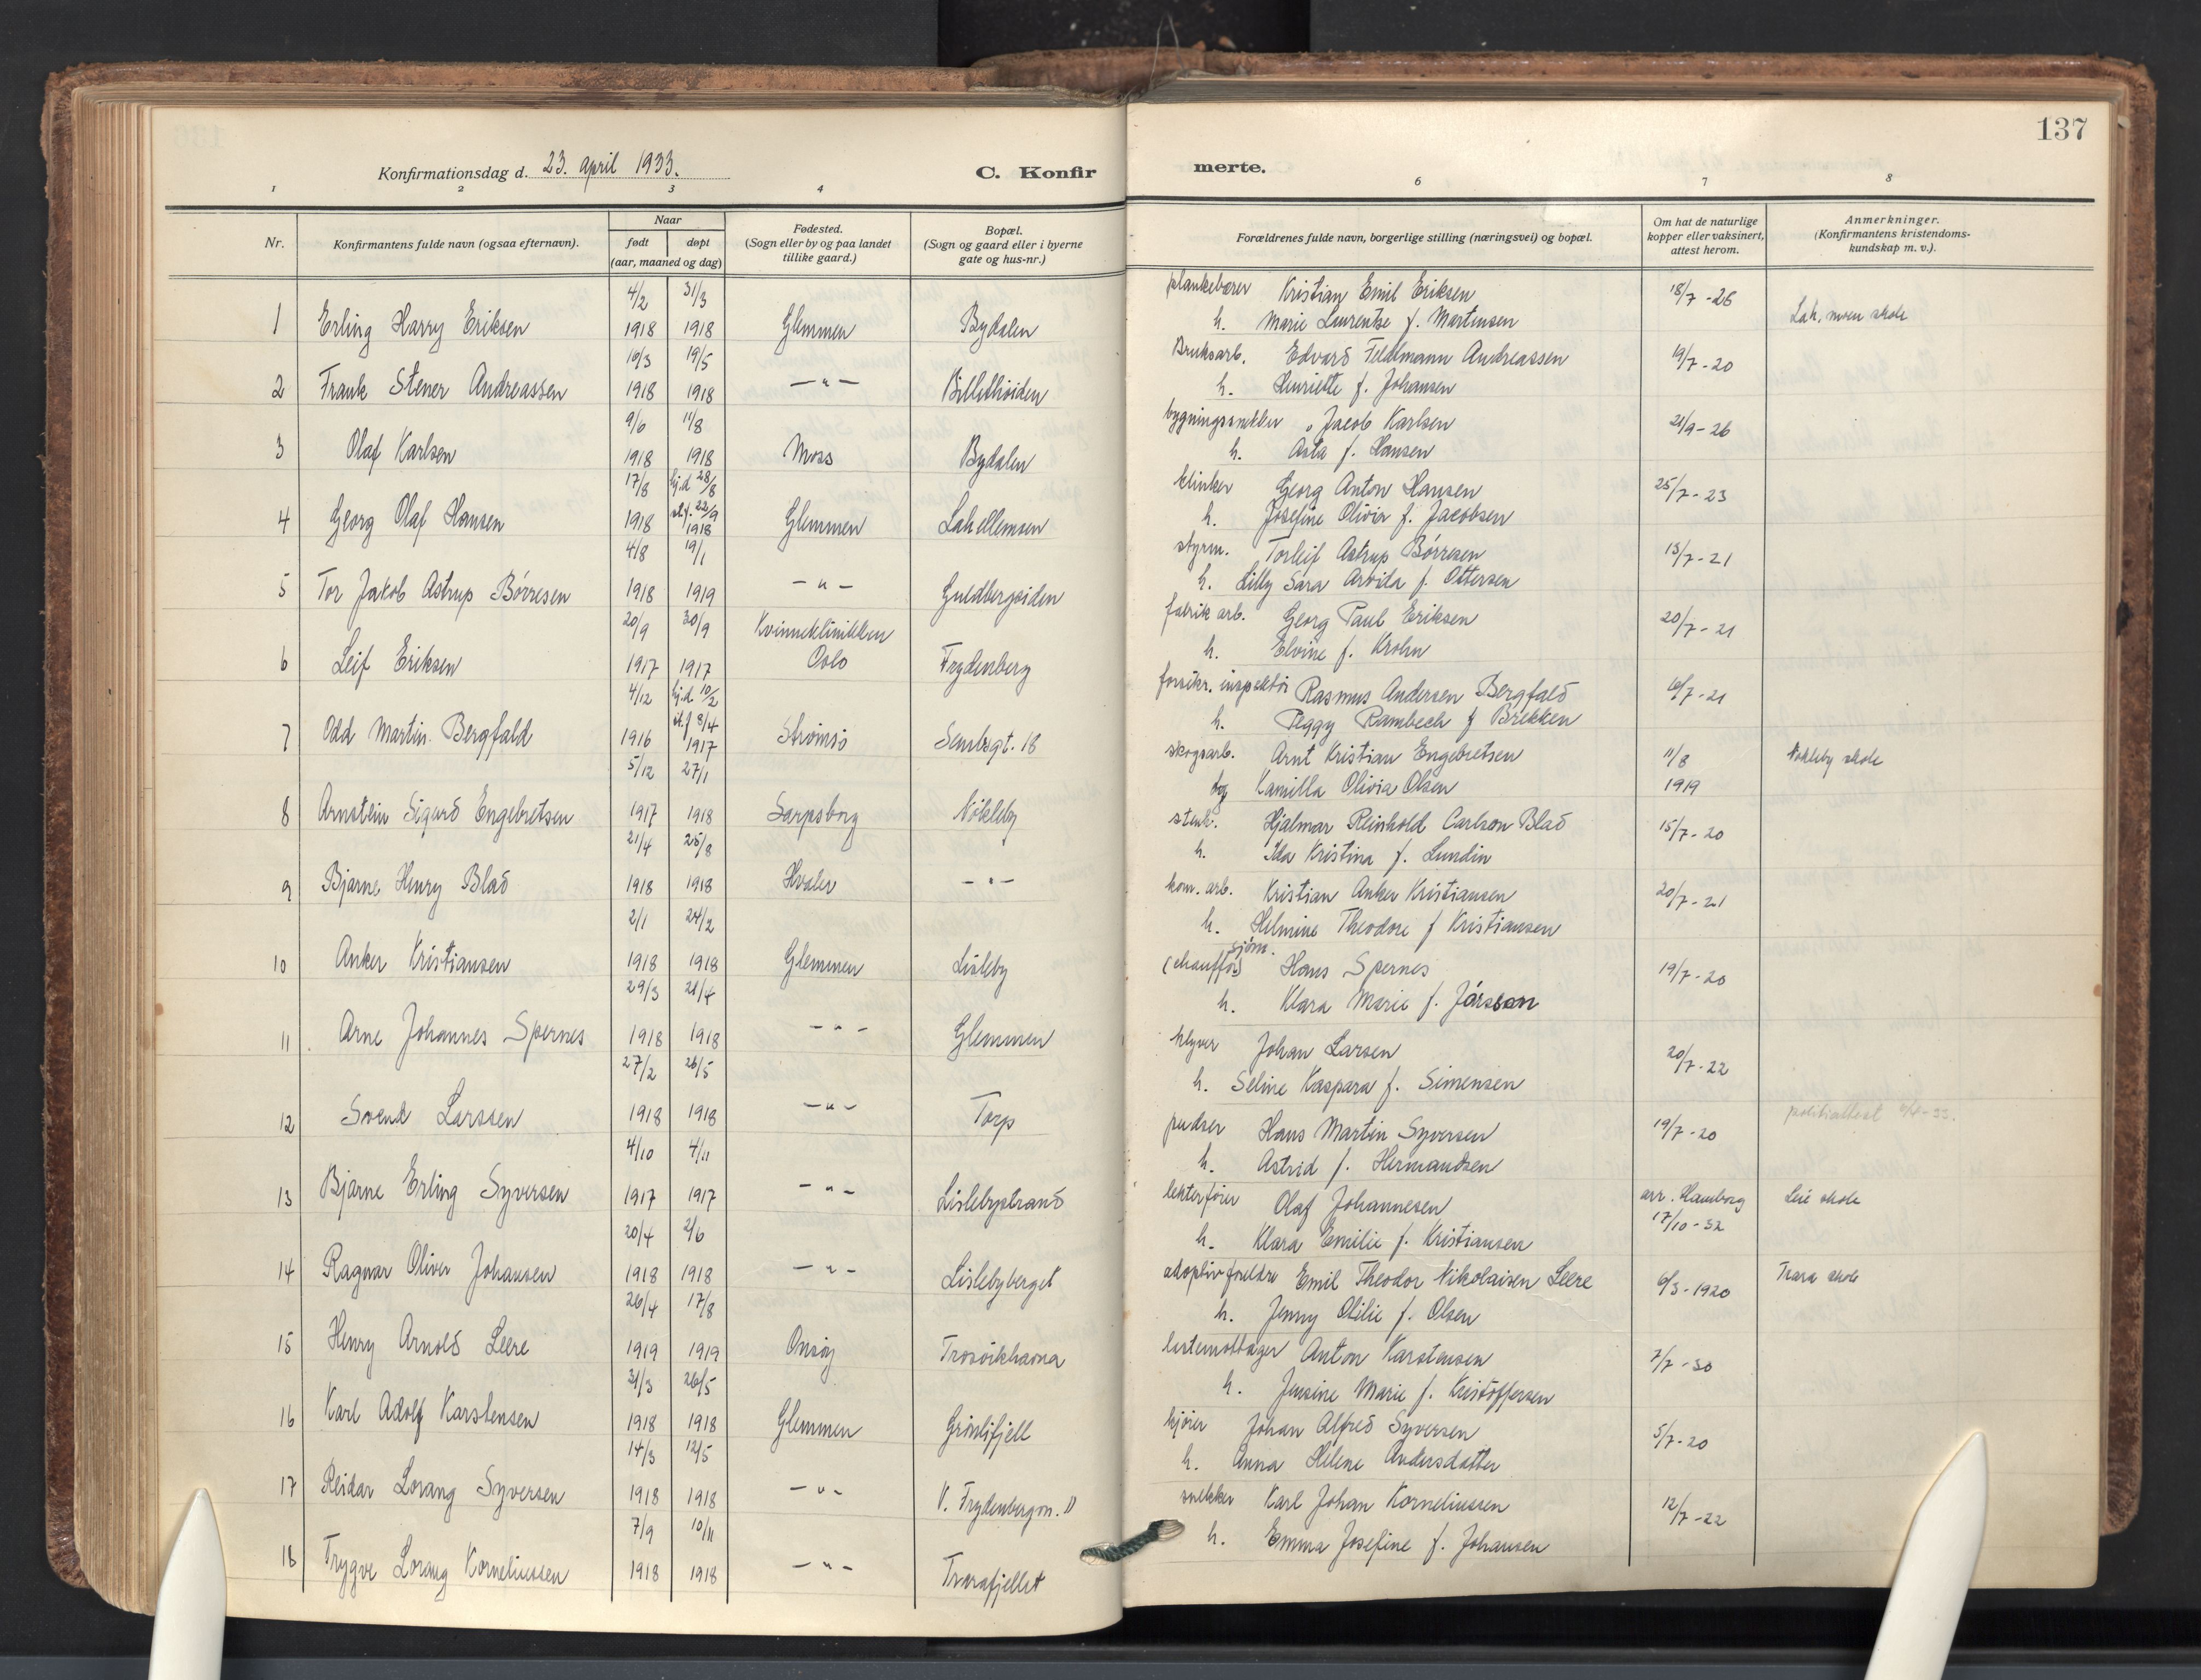 137
Konfirmationsdag d. 23. april 1933.
C. Konfirmerte.
1 2 3 4 6 7 8
Nr.
Konfirmantens fulde navn (ogsaa efternavn).
Naar
født
døpt
(aar, maaned og dag)
Fødested.
(Sogn eller by og paa landet
tillike gaard.)
Bopæl.
(Sogn og gaard eller i byerne
gate og hus-nr.)
Forældrenes fulde navn, borgerlige stilling (næringsvei) og bopæl.
Om hat de naturlige
kopper eller vaksinert,
attest herom.
Anmerkninger.
(Konfirmantens kristendoms-
kundskap m. v.).
4/2 31/3 plankebærer Kristian Emil Eriksen 18/7-26
1 Erling Harry Eriksen 1918 1918 Glemmen Bydalen h. Marie Laurentze f. Martinsen Lah. moen skole
16/3 19/5 Bruksarb. Edvard Feldmann Andreassen 19/7-20
2 Frank Stener Andreassen 1918 1918 -"- h. Henriette f. Johansen
9/6 11/8 bygningssnekker Jacob Karlsen 21/9-26
3 Olaf Karlsen 1918 1918 Moss Bydalen h. Asta f. Hansen
17/8 hj.d 28/8 klinker Georg Anton Hansen 25/7-23
st.f. 22/9
4 Georg Olaf Hansen 1918 1918 Glemmen Lahellemoen h. Josefine Olivia f. Jacobsen
4/8 19/1 styrm. Torleif Astrup Børresen 13/7-21
5 Tor Jakob Astrup Børresen 1918 1919 -"- Guldbergsiden h. Lilly Sara Arvida f. Ottersen
20/9 30/9 Kvinneklinikken fabrik arb. Georg Paul Eriksen 20/7-21
6 Leif Eriksen 1917 1917 Oslo Frydenberg h. Elvine f. Krohn
4/12 hj.d 10/2 forsikr. inspektør Rasmus Andersen Bergfald 6/7-21
st.f 8/4
7 Odd Martin Bergfald 1916 1917 Strømsø h. Peggy Rambech f Brekken
5/12 27/1 skogsarb. Arnt Kristian Engebretsen 11/8 Nøkleby skole
8 Arnstein Sigurd Engebretsen 1917 1918 Sarpsborg Nøkleby og Kamilla Olivia Olsen 1919
21/4 25/8 stenh. Hjalmar Reinhold Carlson Blad 15/7-20
9 Bjarne Henry Blad 1918 1918 Hvaler -"- h. Ida Kristina f. Lundin
2/1 24/2 kom. arb. Kristian Anker Kristiansen 20/7-21
10 Anker Kristiansen 1918 1918 Glemmen Lisleby h. Helmine Theodore f Kristiansen
sjøm.
29/3 21/4 (chauffør) Hans Spernes 19/7-20
11 Arne Johannes Spernes 1918 1918 -"- Glemmen h. Klara Marie f.
27/2 26/5 klyver Johan Larsen 20/7-22
12 Svend Larssen 1918 1918 -"- Torp h. Seline Kaspara f. Simensen
politiattest
4/10 4/11 pudser Hans Martin Syversen 19/7-20
13 Bjarne Erling Syversen 1917 1917 -"- Lislebystrand h. Astrid f. Hermandsen
20/4 2/6 lekterfører Olaf Johannesen arr. Hamborg Leie skole
14 Ragnar Oliver Johansen 1918 1918 -"- Lislebyberget h. Klara Emilie f. Kristiansen 17/10-32
26/4 17/8 adoptivforeldre Emil Theodor Nikolaisen Leere 6/3-1920 Trara skole
15 Henry Arnold Leere 1919 1919 Onsøy h. Jenny Otilie f. Olsen
31/3 26/5 lastemottager Anton Karstensen 7/7-30
16 Karl Adolf Karstensen 1918 1918 Glemmen Grønlifjell h. Jensine Marie f. Kristoffersen
14/3 12/5 kjører Johan Alfred Syversen 5/7-20
17 Reidar Lorang Syversen 1918 1918 -"- V. Frydenbergvn. 11 h. Anna Helene Andersdatter
7/9 10/11 snekker Karl Johan Korneliussen 12/7-22
18 Trygve Lorang Korneliussen 1918 1918 -"- Trarafjellet h. Emma Josefine f. Johansen